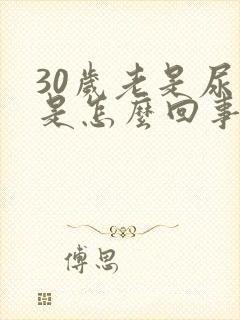 30歲老是尿
是怎麼回事
傅思